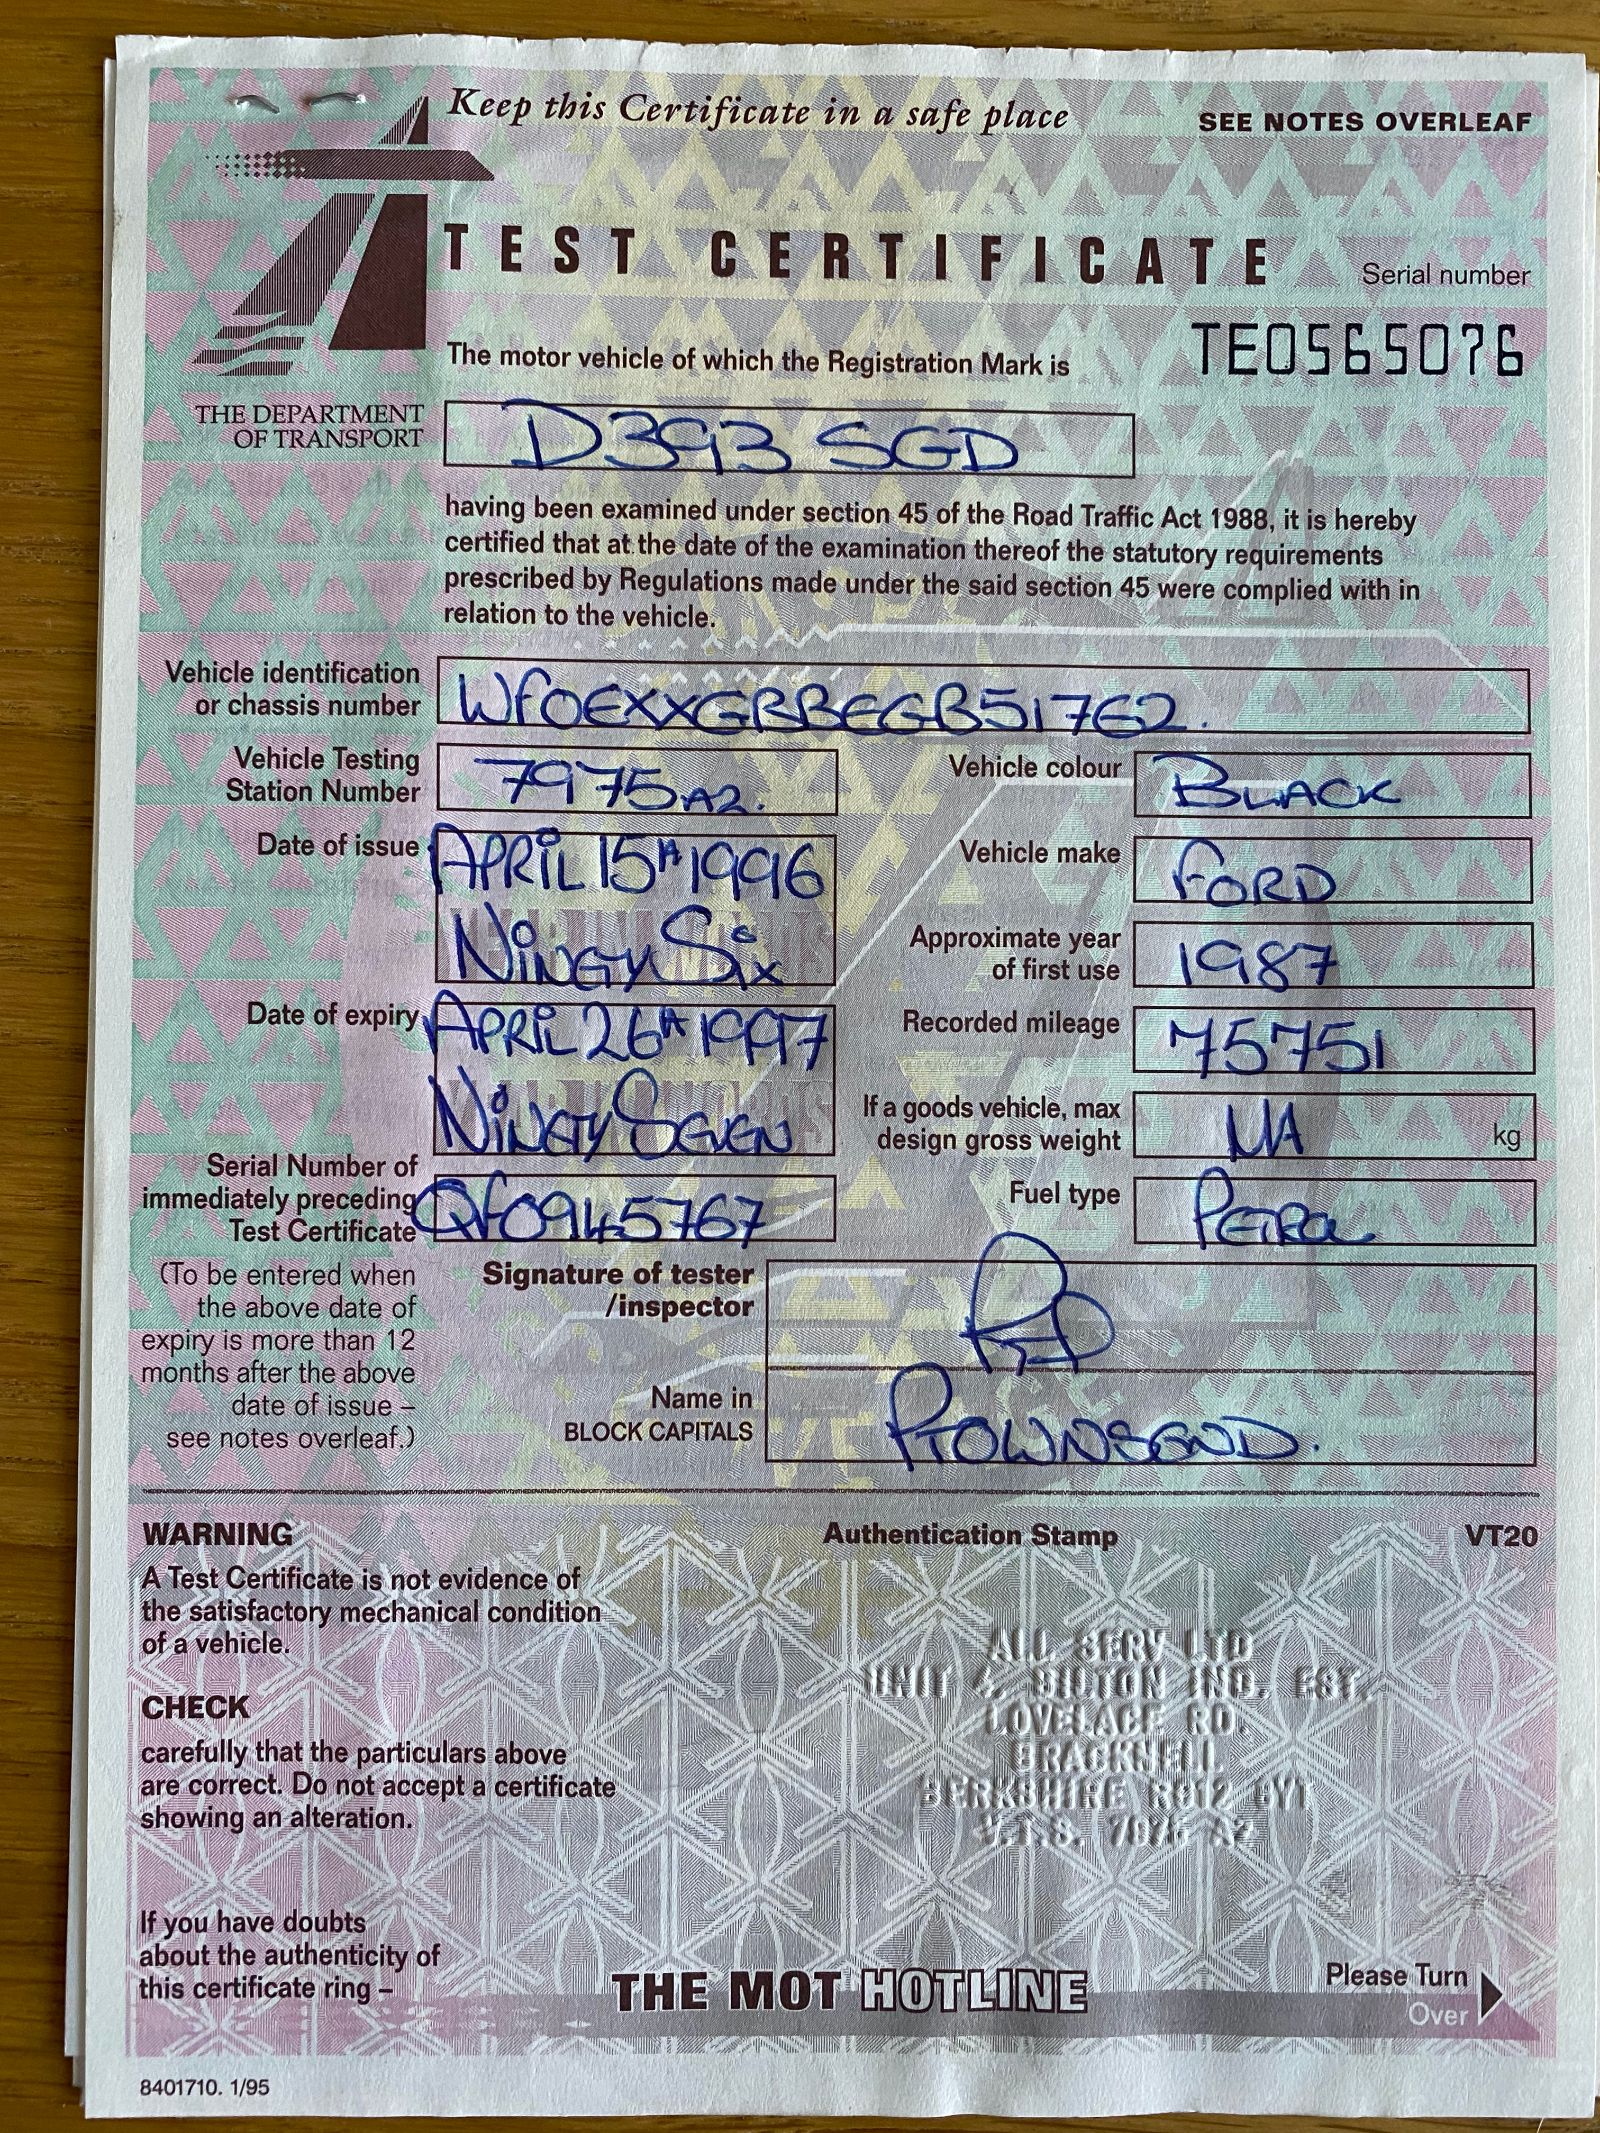 Keep this Certificate in a safe place
SEE NOTES OVERLEAF
TEST CERTIFICATE
Serial number
TE0565076
THE DEPARTMENT
OF TRANSPORT
The motor vehicle of which the Registration Mark is
D393 SGD
having been examined under section 45 of the Road Traffic Act 1988, it is hereby
certified that at the date of the examination thereof the statutory requirements
prescribed by Regulations made under the said section 45 were complied with in
relation to the vehicle.
Vehicle identification
or chassis number
WFOEXXGBBEGB51762.
Vehicle Testing
Station Number
7975A2.
Vehicle colour
BLACK
Date of issue
APRIL 15th 1996
NINETY SIX
Vehicle make
FORD
Approximate year
of first use
1987
Date of expiry
APRIL 26th 1997
NINETY SEVEN
Recorded mileage
75751
If a goods vehicle, max
design gross weight
NA
kg
Serial Number of
immediately preceding
Test Certificate
QF0945767
Fuel type
PETROL
(To be entered when
the above date of
expiry is more than 12
months after the above
date of issue –
see notes overleaf.)
Signature of tester
/inspector
Name in
BLOCK CAPITALS
P TOWNSEND.
WARNING
A Test Certificate is not evidence of
the satisfactory mechanical condition
of a vehicle.
CHECK
carefully that the particulars above
are correct. Do not accept a certificate
showing an alteration.
If you have doubts
about the authenticity of
this certificate ring –
Authentication Stamp
VT20
ALL SERV LTD
UNIT 4, BILTON IND. EST,
LOVELACE RD,
BRACKNELL
BERKSHIRE RG12
V.T.S. 7975 A2
THE MOT HOTLINE
Please Turn
Over
8401710. 1/95